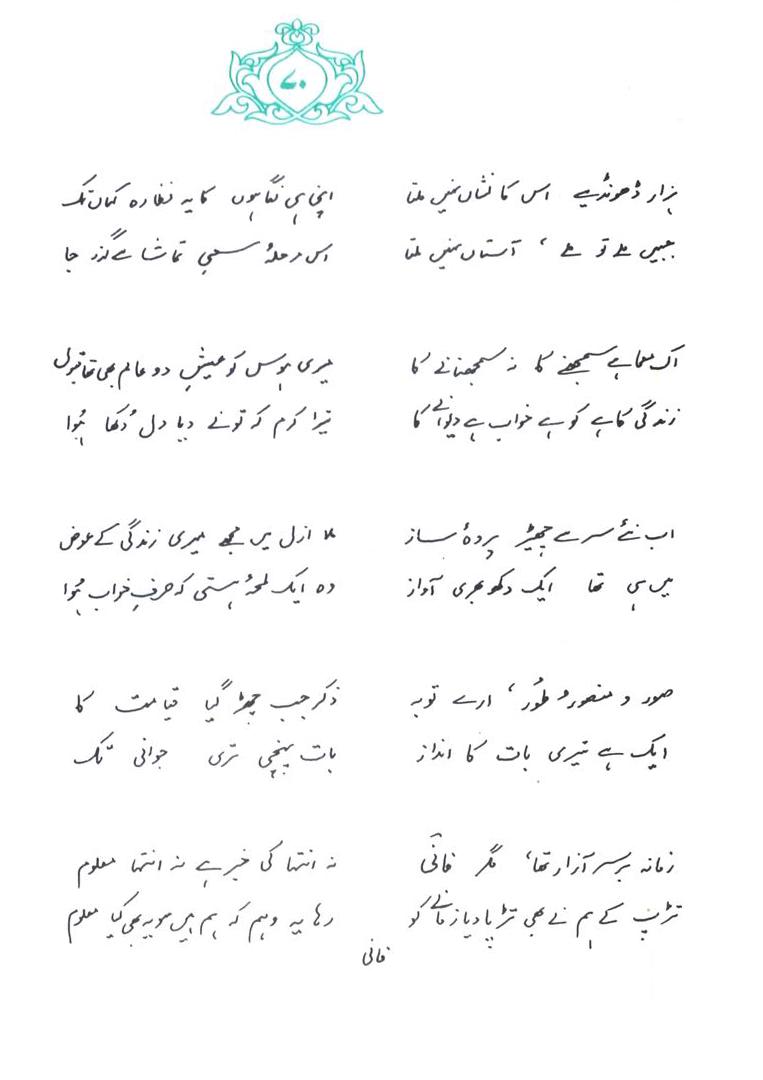 ۷۰
ہزار ڈھونڈیے اس کا نشاں نہیں ملتا
جبیں ملے تو ملے ، آستاں نہیں ملتا
اپنی ہی نگاہوں کا یہ نظارہ کہاں تک
اس مرحلۂ سعیِ تماشا سے گذر جا
اک معما ہے سمجھنے کا نہ سمجھانے کا
زندگی کاہے کو ہے خواب ہے دیوانے کا
میری ہوس کو عیشِ دو عالم بھی تھا قبول
تیرا کرم کہ تو نے دیا دل دُکھا ہُوا
اب نئے سرے سے چھیڑ پردۂ ساز
میں ہی تھا ایک دکھ بھری آواز
ملا ازل میں مجھے میری زندگی کے عوض
وہ ایک لمحۂ ہستی کہ صرفِ خواب ہُوا
صور و منصور و طُور ، ارے توبہ
ایک ہے تیری بات کا انداز
ذکر جب چھڑ گیا قیامت کا
بات پہنچی تری جوانی تک
زمانہ برسرِ آزار تھا ، مگر فانؔی
تڑپ کے ہم نے بھی تڑپا دیا زمانے کو
نہ انتہا کی خبر ہے نہ انتہا معلوم
رہا یہ وہم کہ ہم ہیں سو یہ بھی کیا معلوم
فانی